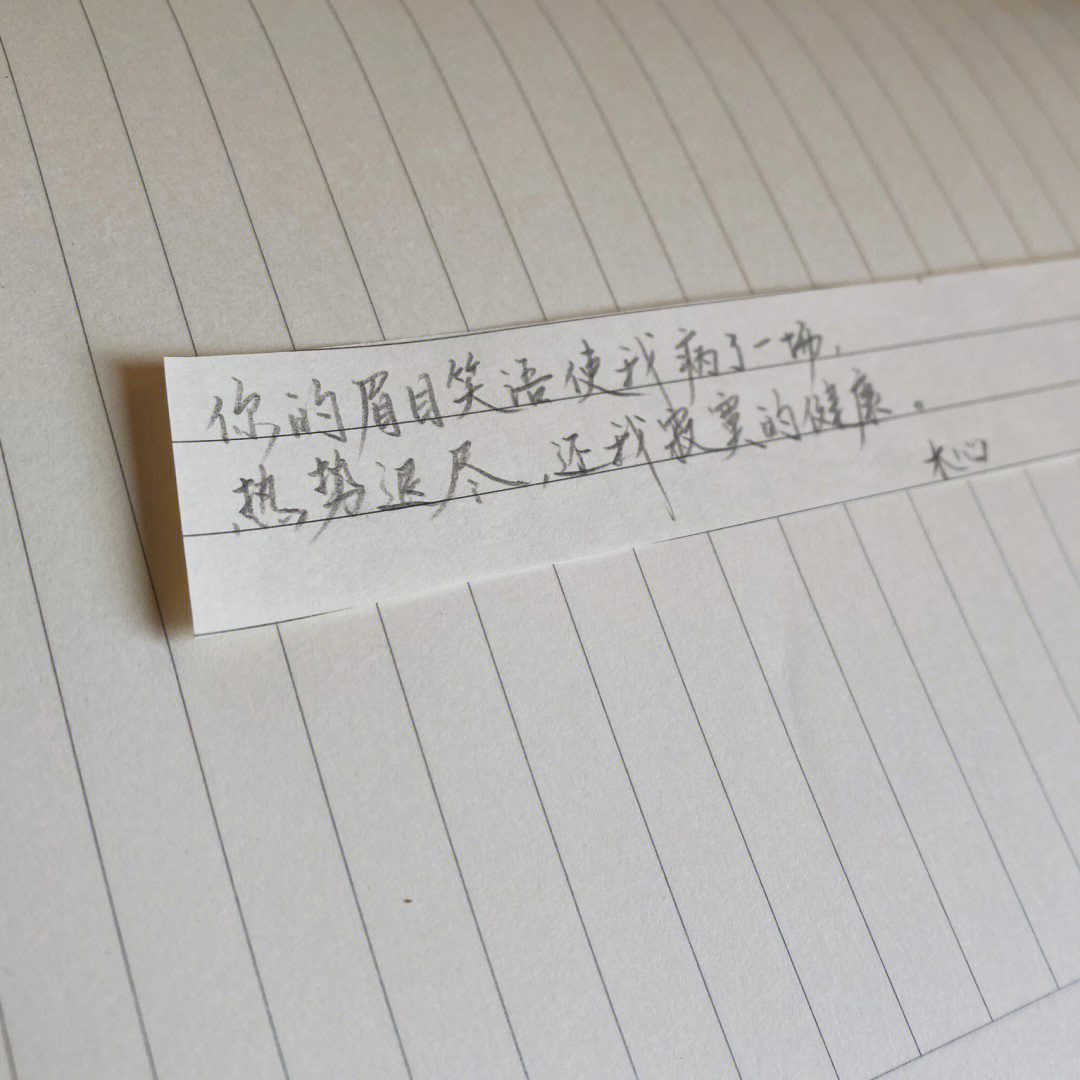 你的眉目笑语使我病了一场,
热势退尽,还我寂寞的健康。
木心